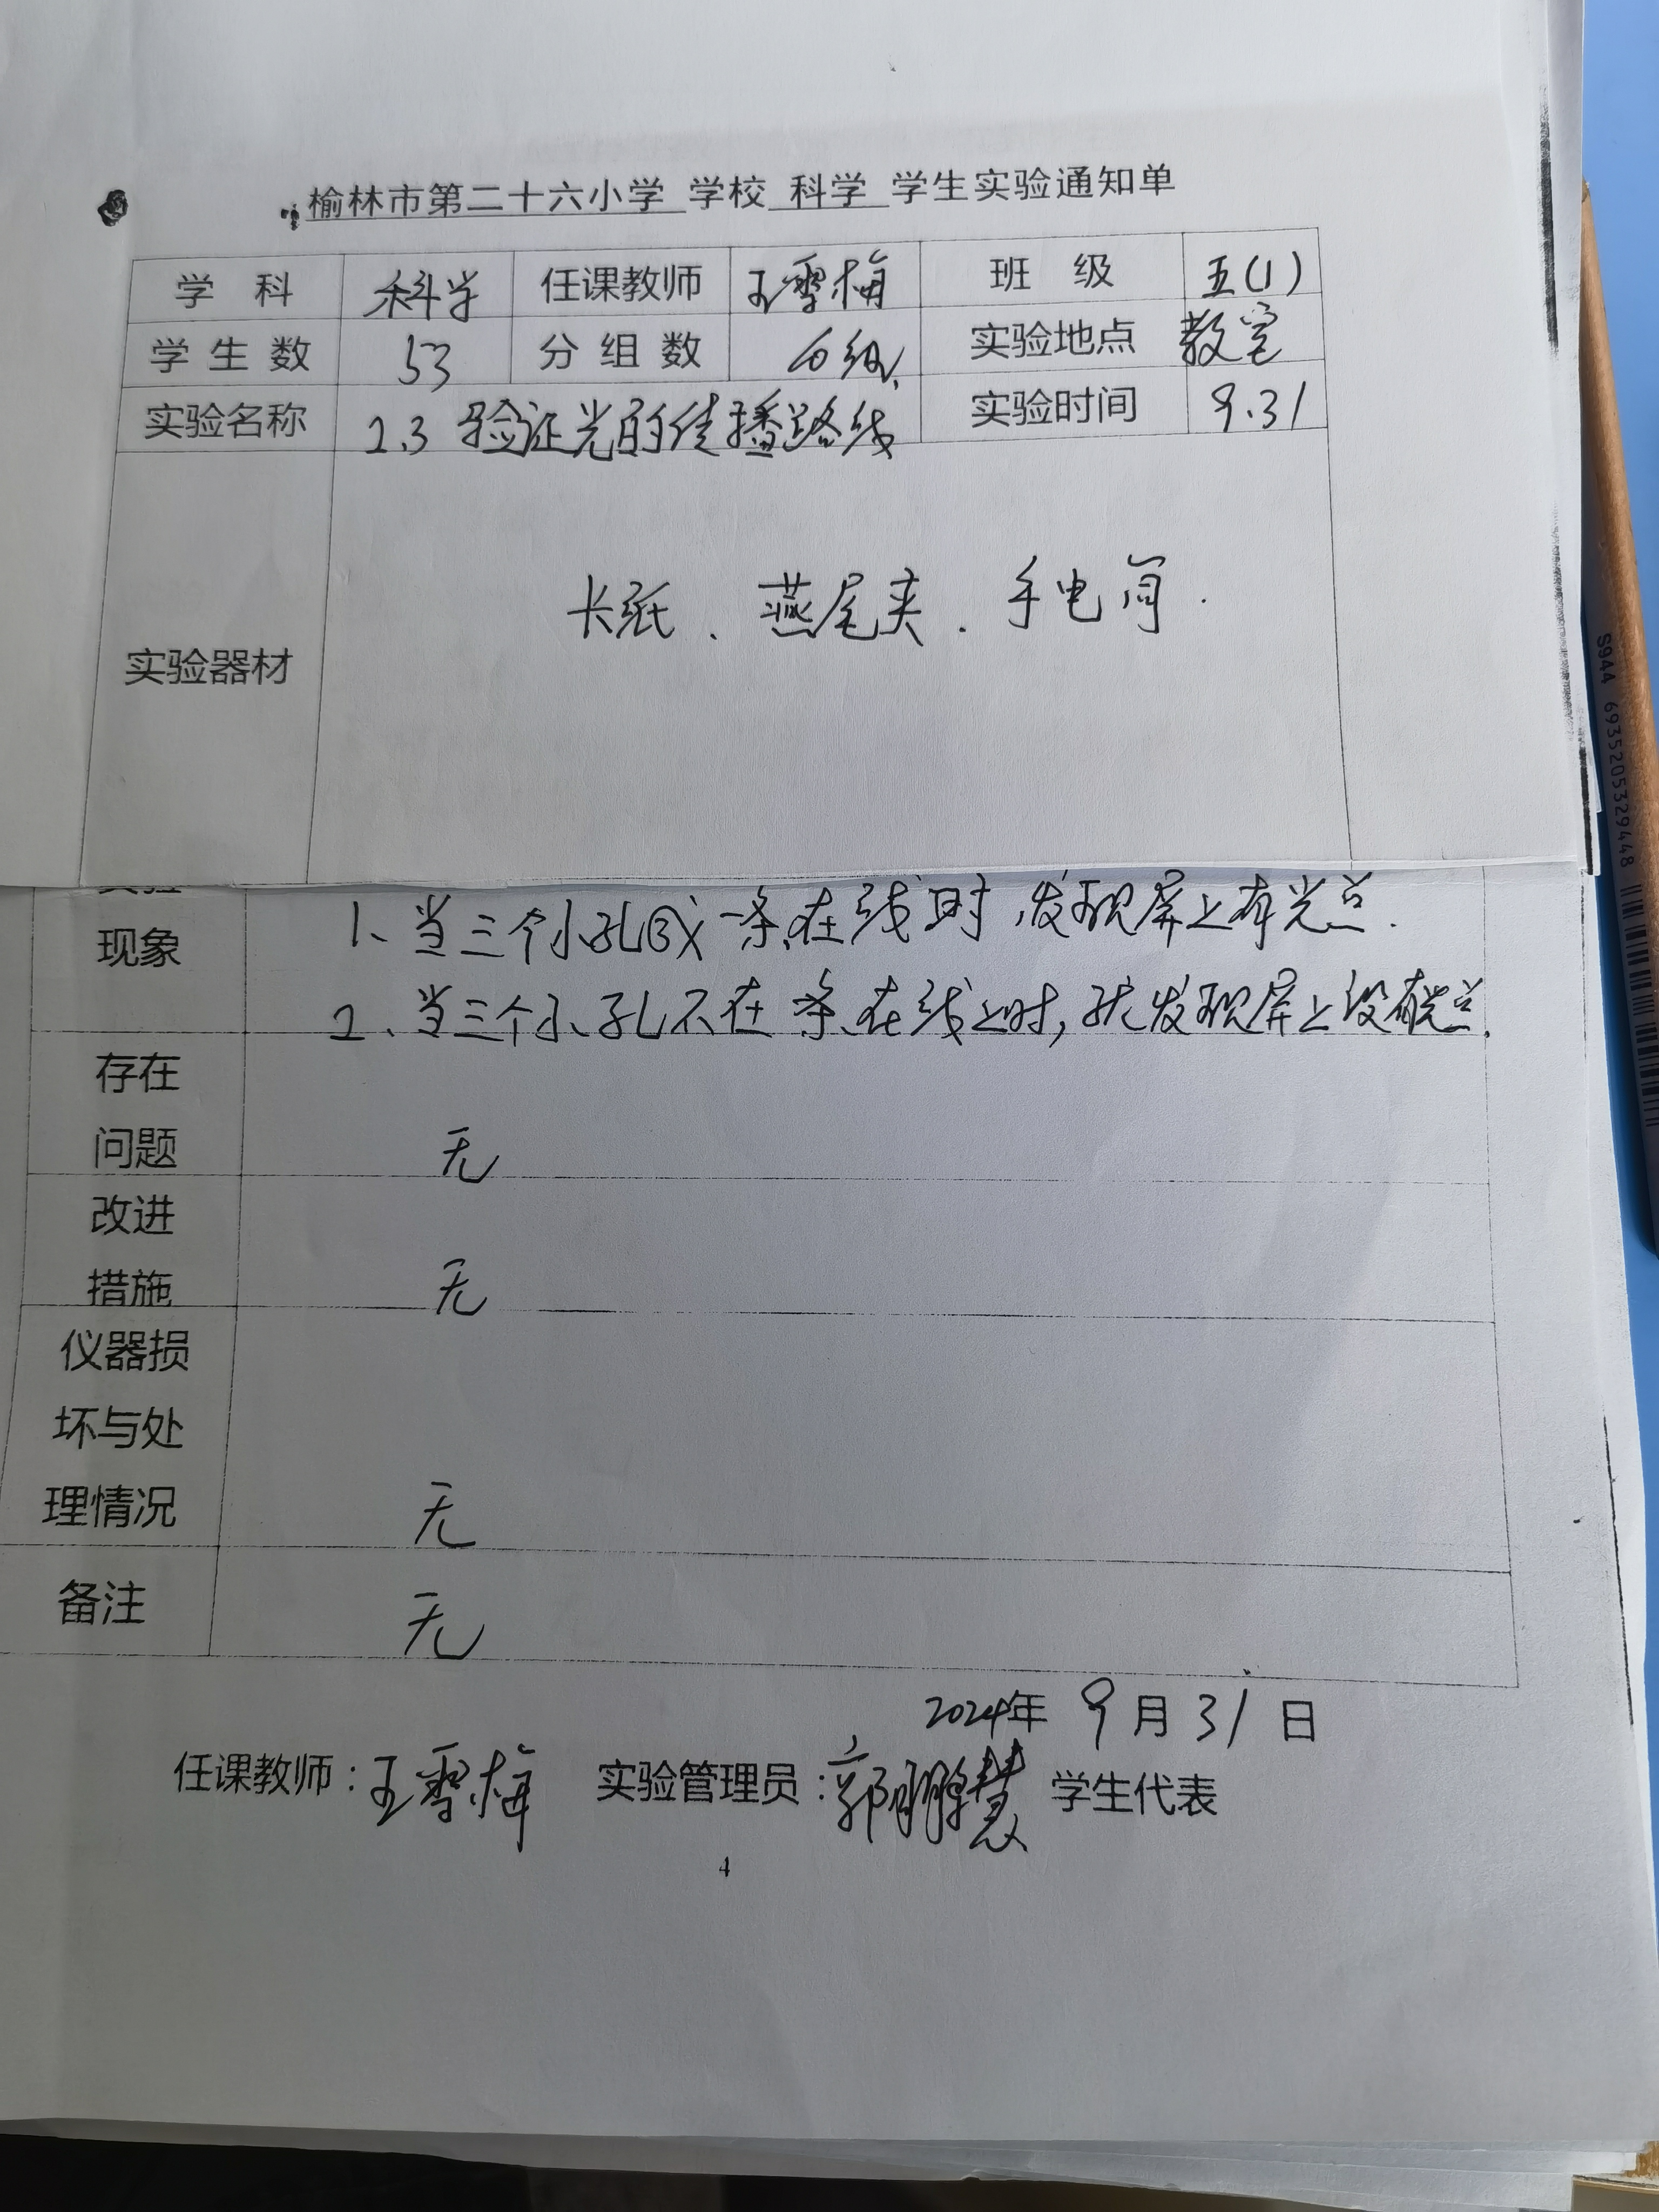 榆林市第二十六小学 学校 科学 学生实验通知单
学 科 科学 任课教师 王雪梅 班 级 五(1)
学 生 数 53 分 组 数 6组 实验地点 教室
实验名称 2.3 验证光的传播路线 实验时间 9.31
卡纸、燕尾夹、手电筒.
实验器材
1、当三个小孔 一条直线时,发现屏上有光点.
现象
2、当三个小孔不在一条直线上时,就发现屏上没有光点.
存在
问题 无
改进
措施 无
仪器损
坏与处
理情况 无
备注 无
2024年 9月 31 日
任课教师:王雪梅 实验管理员:郭鹏慧 学生代表
4
S944 6935205329448